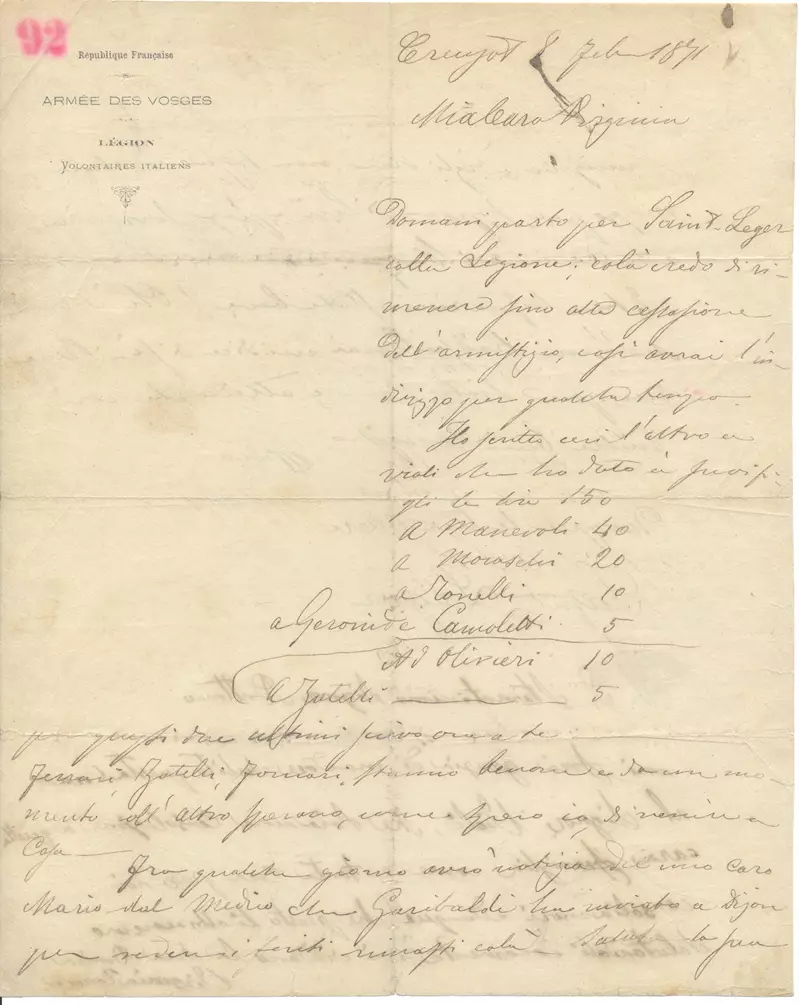 92
République Française
ARMÉE DES VOSGES
LÉGION
VOLONTAIRES ITALIENS
Creuzot 8 Feb 1871
Mia Cara Virginia
Domani parto per Saint-Leger
colla Legione; colà credo di ri-
manere fino alla cessasione
dell'armistizio, così avrai l'in-
dirizzo per qualche tempo.
Ho scritto l'altro
che ho dato
le lire 150
A Manevoli 40
a Moraschi 20
a Tonelli 10
a Geroni di Camoletti 5
Ad Olivieri 10
a Zatelli 5
per questi due ultimi scrivo ora a te
Ferrari, Zatelli, Fornari, stanno benone e da un mo-
mento all'altro sperano, come spero io di venire a
Casa
Fra qualche giorno avrò notizia del mio caro
Mario dal Medico che Garibaldi ha inviato a Dijon
per vedere i feriti rimasti colà. Saluta la